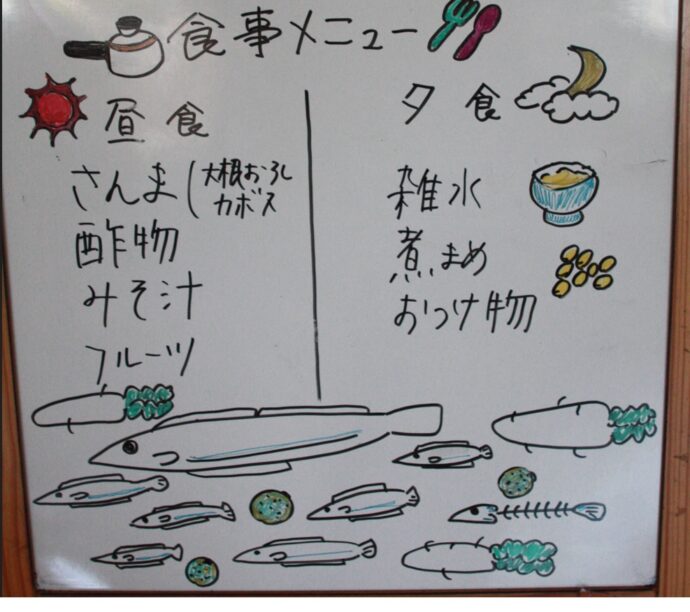 食事メニュー
昼食
さんま(大根おろし
カボス
酢物
みそ汁
フルーツ
夕食
雑水
煮まめ
おつけ物